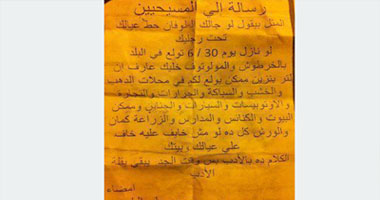 رسالة إلى المسيحيين
المثل بيقول لو جالك الطوفان حط عيالك
تحت رجليك
لو نازل يوم 30 / 6 تولع في البلد
بالخرطوش والمولوتوف خليك عارف إن
لتر بنزين ممكن يولع لكم في محلات الدهب
والخشب والسباكة والجزارات والتجارة
والأوتوبيسات والسيارات والجناين وممكن
البيوت والكنائس والمدارس والزراعة كمان
والورش كل ده لو مش خايف عليه خاف
علي عيالك وبيتك
الكلام ده بالأدب بس وقت الجد يبقي بقلة
الأدب
امضاء